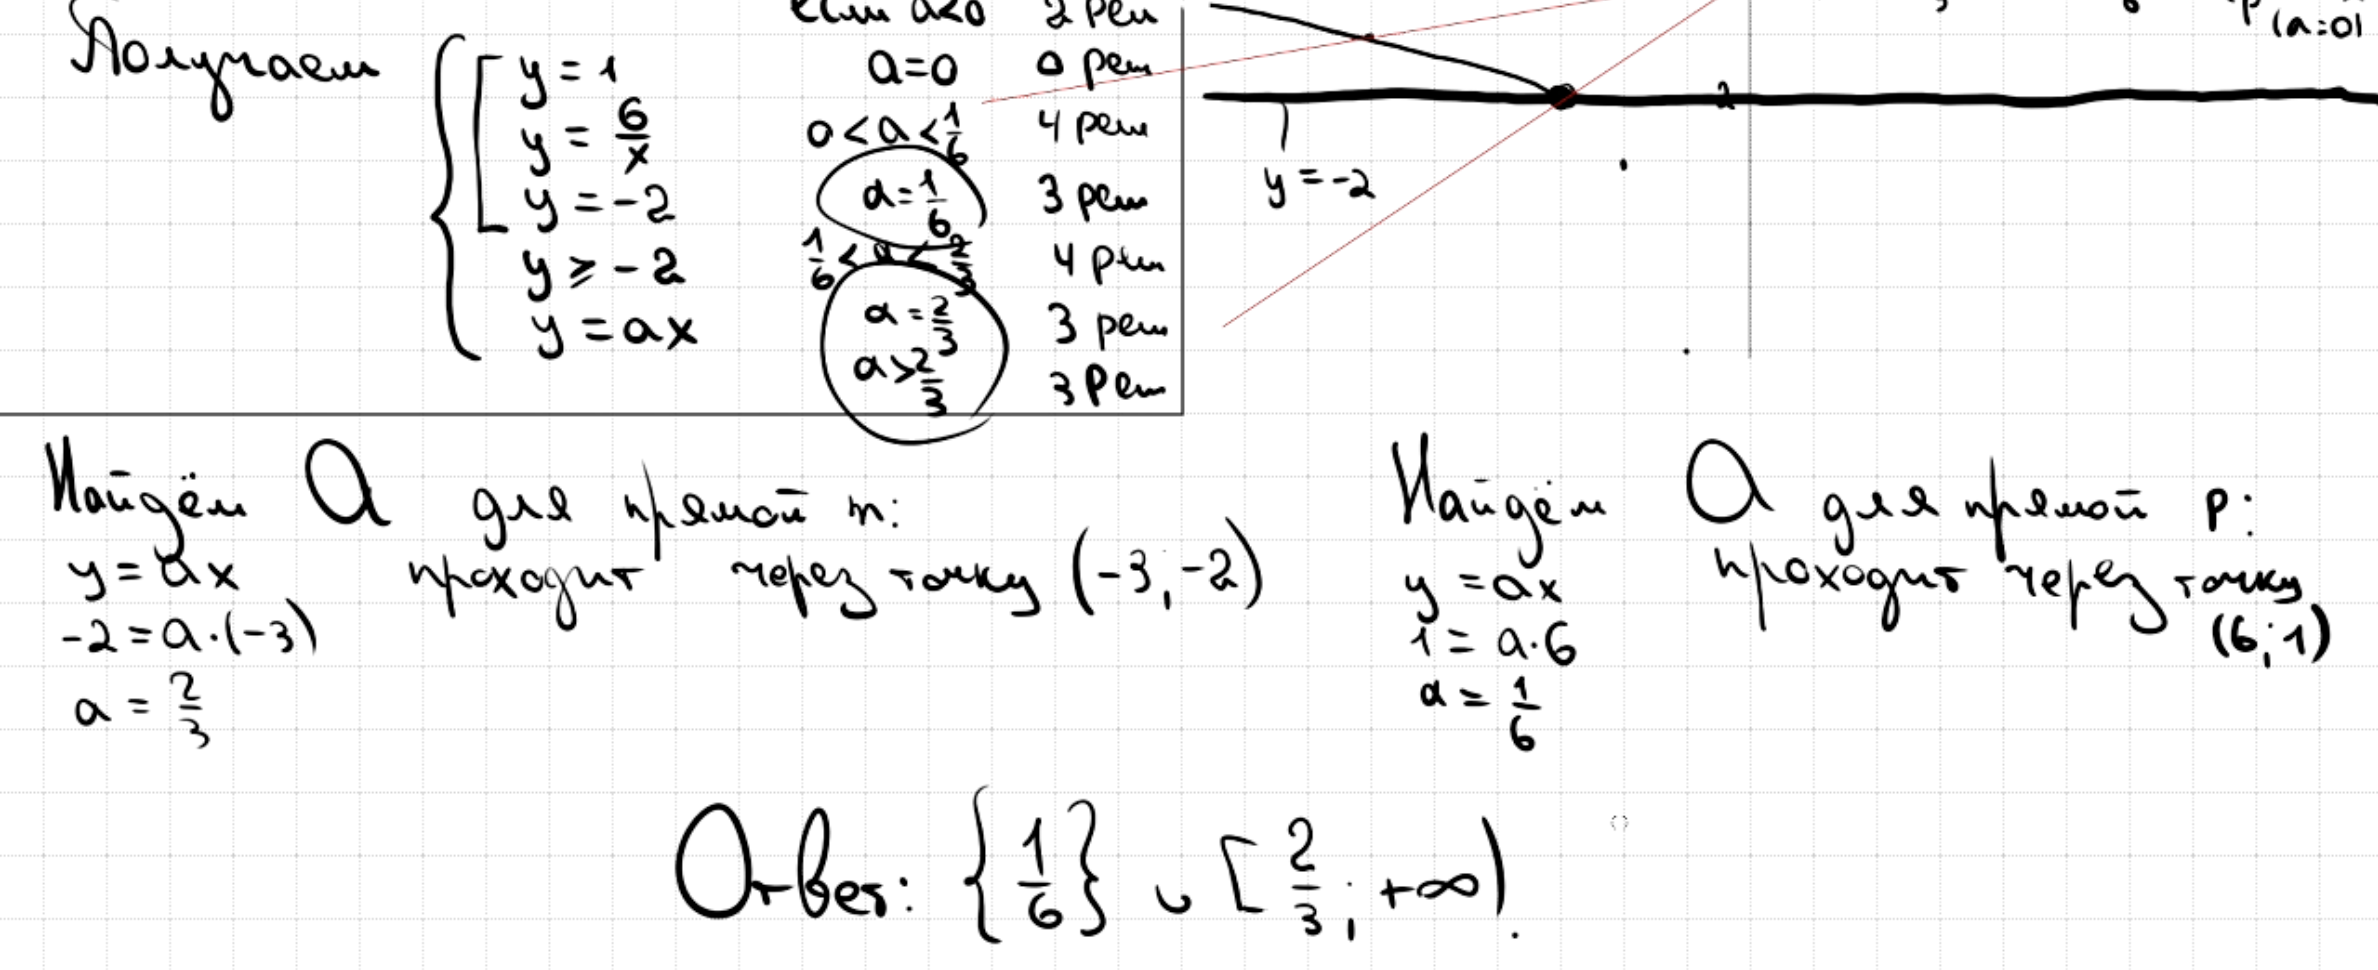 Получаем
y = 1
y = 6/x
y = -2
y ≥ -2
y = ax
если a<0 2 реш
a=0 0 реш
0 < a < 1/6 4 реш
a = 1/6 3 реш
1/6 < a < 2/3 4 реш
a = 2/3 3 реш
a > 2/3 3 реш
(a=0)
2
y = -2
Найдём a для прямой m:
y = ax проходит через точку (-3, -2)
-2 = a·(-3)
a = 2/3
Найдём a для прямой p:
y = ax проходит через точку
1 = a·6 (6; 1)
a = 1/6
Ответ: {1/6} ∪ [2/3; +∞).